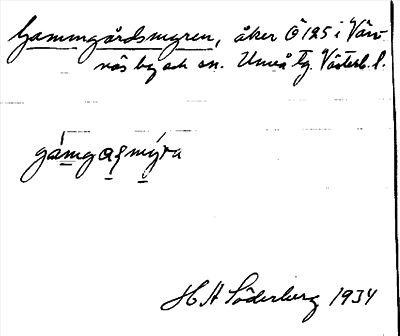 Gammgårdsmyren, åker Ö 125 i Vän-
näs by och sn. Umeå tg. Västerb. l.
gámgaṣmýra
H A Söderberg 1934